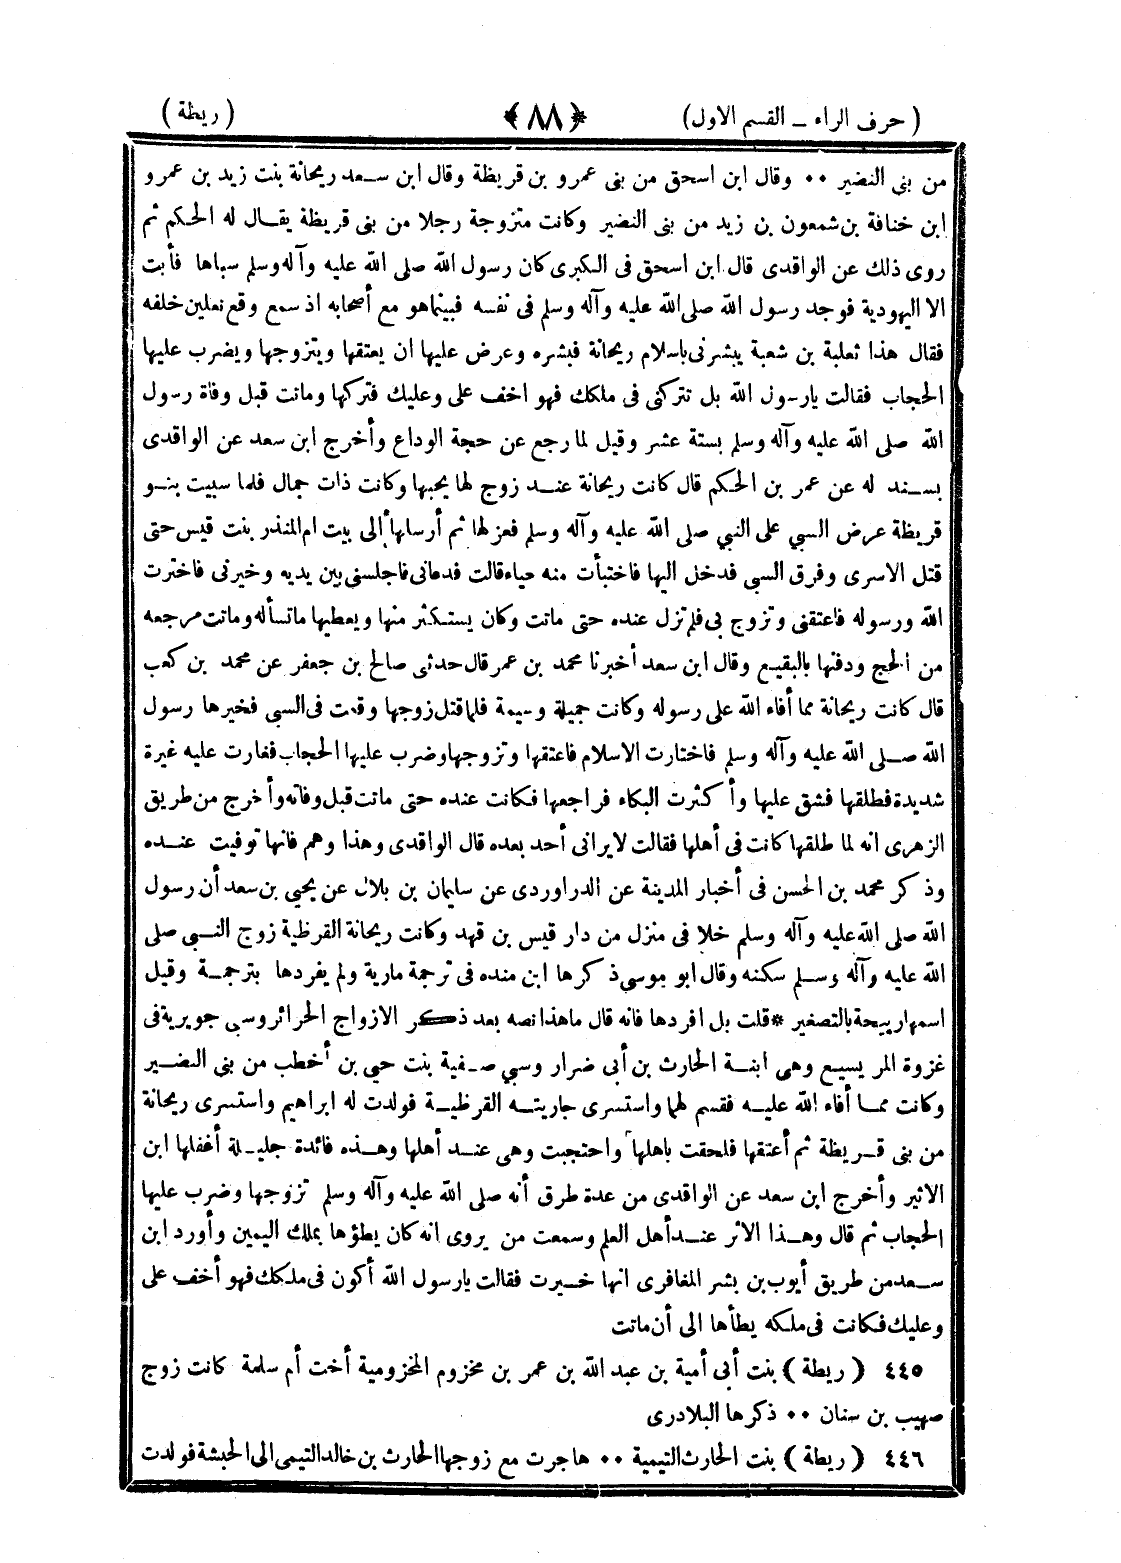 ( حرف الراء ــ القسم الاول) ﴿ ٨٨ ﴾ ( ريطة )
من بنى النضير ٠٠ وقال ابن اسحق من بنى عمرو بن قريظة وقال ابن سعد ريحانة بنت زيد بن عمرو
ابن خنافة بن شمعون بن زيد من بنى النضير وكانت متزوجة رجلا من بنى قريظة يقال له الحكم ثم
روى ذلك عن الواقدى قال ابن اسحق فى الكبرى كان رسول الله صلى الله عليه وآله وسلم سباها فأبت
الا اليهودية فوجد رسول الله صلى الله عليه وآله وسلم فى نفسه فبينما هو مع أصحابه اذ سمع وقع نعلين خلفه
فقال هذا ثعلبة بن شعبة يبشرنى باسلام ريحانة فبشره وعرض عليها ان يعتقها ويتزوجها ويضرب عليها
الحجاب فقالت يارسول الله بل تتركنى فى ملكك فهو اخف على وعليك فتركها وماتت قبل وفاة رسول
الله صلى الله عليه وآله وسلم بستة عشر وقيل لما رجع عن حجة الوداع وأخرج ابن سعد عن الواقدى
بسند له عن عمر بن الحكم قال كانت ريحانة عند زوج لها يحبها وكانت ذات جمال فلما سبيت بنو
قريظة عرض السبي على النبي صلى الله عليه وآله وسلم فعزلها ثم أرسلها ألى بيت ام المنذر بنت قيس حتى
قتل الاسرى وفرق السبى فدخل اليها فاختبأت منه حياء قالت فدعانى فاجلسنى بين يديه وخيرنى فاخترت
الله ورسوله فاعتقنى وتزوج بى فلم تزل عنده حتى ماتت وكان يستكثر منها ويعطيها ماتسأله وماتت مرجعه
من الحج ودفنها بالبقيع وقال ابن سعد أخبرنا محمد بن عمر قال حدثى صالح بن جعفر عن محمد بن كعب
قال كانت ريحانة مما أفاء الله على رسوله وكانت جميلة وسيمة فلما قتل زوجها وقعت فى السبى فخيرها رسول
الله صلى الله عليه وآله وسلم فاختارت الاسلام فاعتقها وتزوجها وضرب عليها الحجاب فغارت عليه غيرة
شديدة فطلقها فشق عليها وأكثرت البكاء فراجعها فكانت عنده حتى ماتت قبل وفاته وأخرج من طريق
الزهرى انه لما طلقها كانت فى أهلها فقالت لايرانى أحد بعده قال الواقدى وهذا وهم فانها توفيت عنده
وذكر محمد بن الحسن فى أخبار المدينة عن الدراوردى عن سليمان بن بلال عن يحيي بن سعد أن رسول
الله صلى الله عليه وآله وسلم خلا فى منزل من دار قيس بن قهد وكانت ريحانة القرظية زوج النبى صلى
الله عليه وآله وسلم سكنه وقال ابو موسي ذكرها ابن منده فى ترجمة مارية ولم يفردها بترجمة وقيل
اسمها ربيحة بالتصغير * قلت بل افردها فانه قال ماهذا نصه بعد ذكر الازواج الحرائر وسبى جويرية فى
غزوة المريسيع وهى ابنة الحارث بن أبى ضرار وسبي صفية بنت حيى بن أخطب من بنى النضير
وكانت مما أفاء الله عليه فقسم لهما واستسرى جاريته القرظية فولدت له ابراهيم واستسرى ريحانة
من بنى قريظة ثم أعتقها فلحقت باهلها واحتجبت وهى عند أهلها وهذه فائدة جليلة أغفلها ابن
الاثير وأخرج ابن سعد عن الواقدى من عدة طرق أنه صلى الله عليه وآله وسلم تزوجها وضرب عليها
الحجاب ثم قال وهذا الاثر عند أهل العلم وسمعت من يروى انه كان يطؤها بملك اليمين وأورد ابن
سعد من طريق أيوب بن بشر المغافرى انها خيرت فقالت يارسول الله أكون فى ملكك فهو أخف على
وعليك فكانت فى ملكه يطأها الى أن ماتت
٤٤٥ ( ريطة ) بنت أبى أمية بن عبد الله بن عمر بن مخزوم المخزومية أخت أم سلمة كانت زوج
صهيب بن سنان ٠٠ ذكرها البلادرى
٤٤٦ ( ريطة ) بنت الحارث التيمية ٠٠ هاجرت مع زوجها الحارث بن خالد التيمى الى الحبشة فولدت